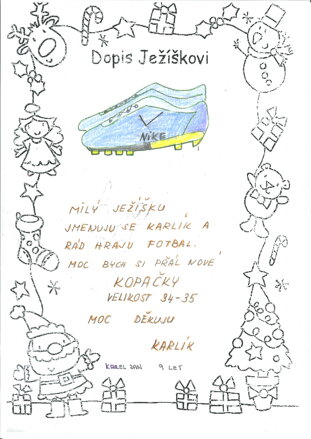 Dopis Ježíškovi
NIKE
MILÝ JEŽÍŠKU
JMENUJU SE KARLÍK A
RÁD HRAJU FOTBAL.
MOC BYCH SI PŘÁL NOVÉ
KOPAČKY
VELIKOST 34-35
MOC DĚKUJU
KARLÍK
KAREL JAN 9 LET